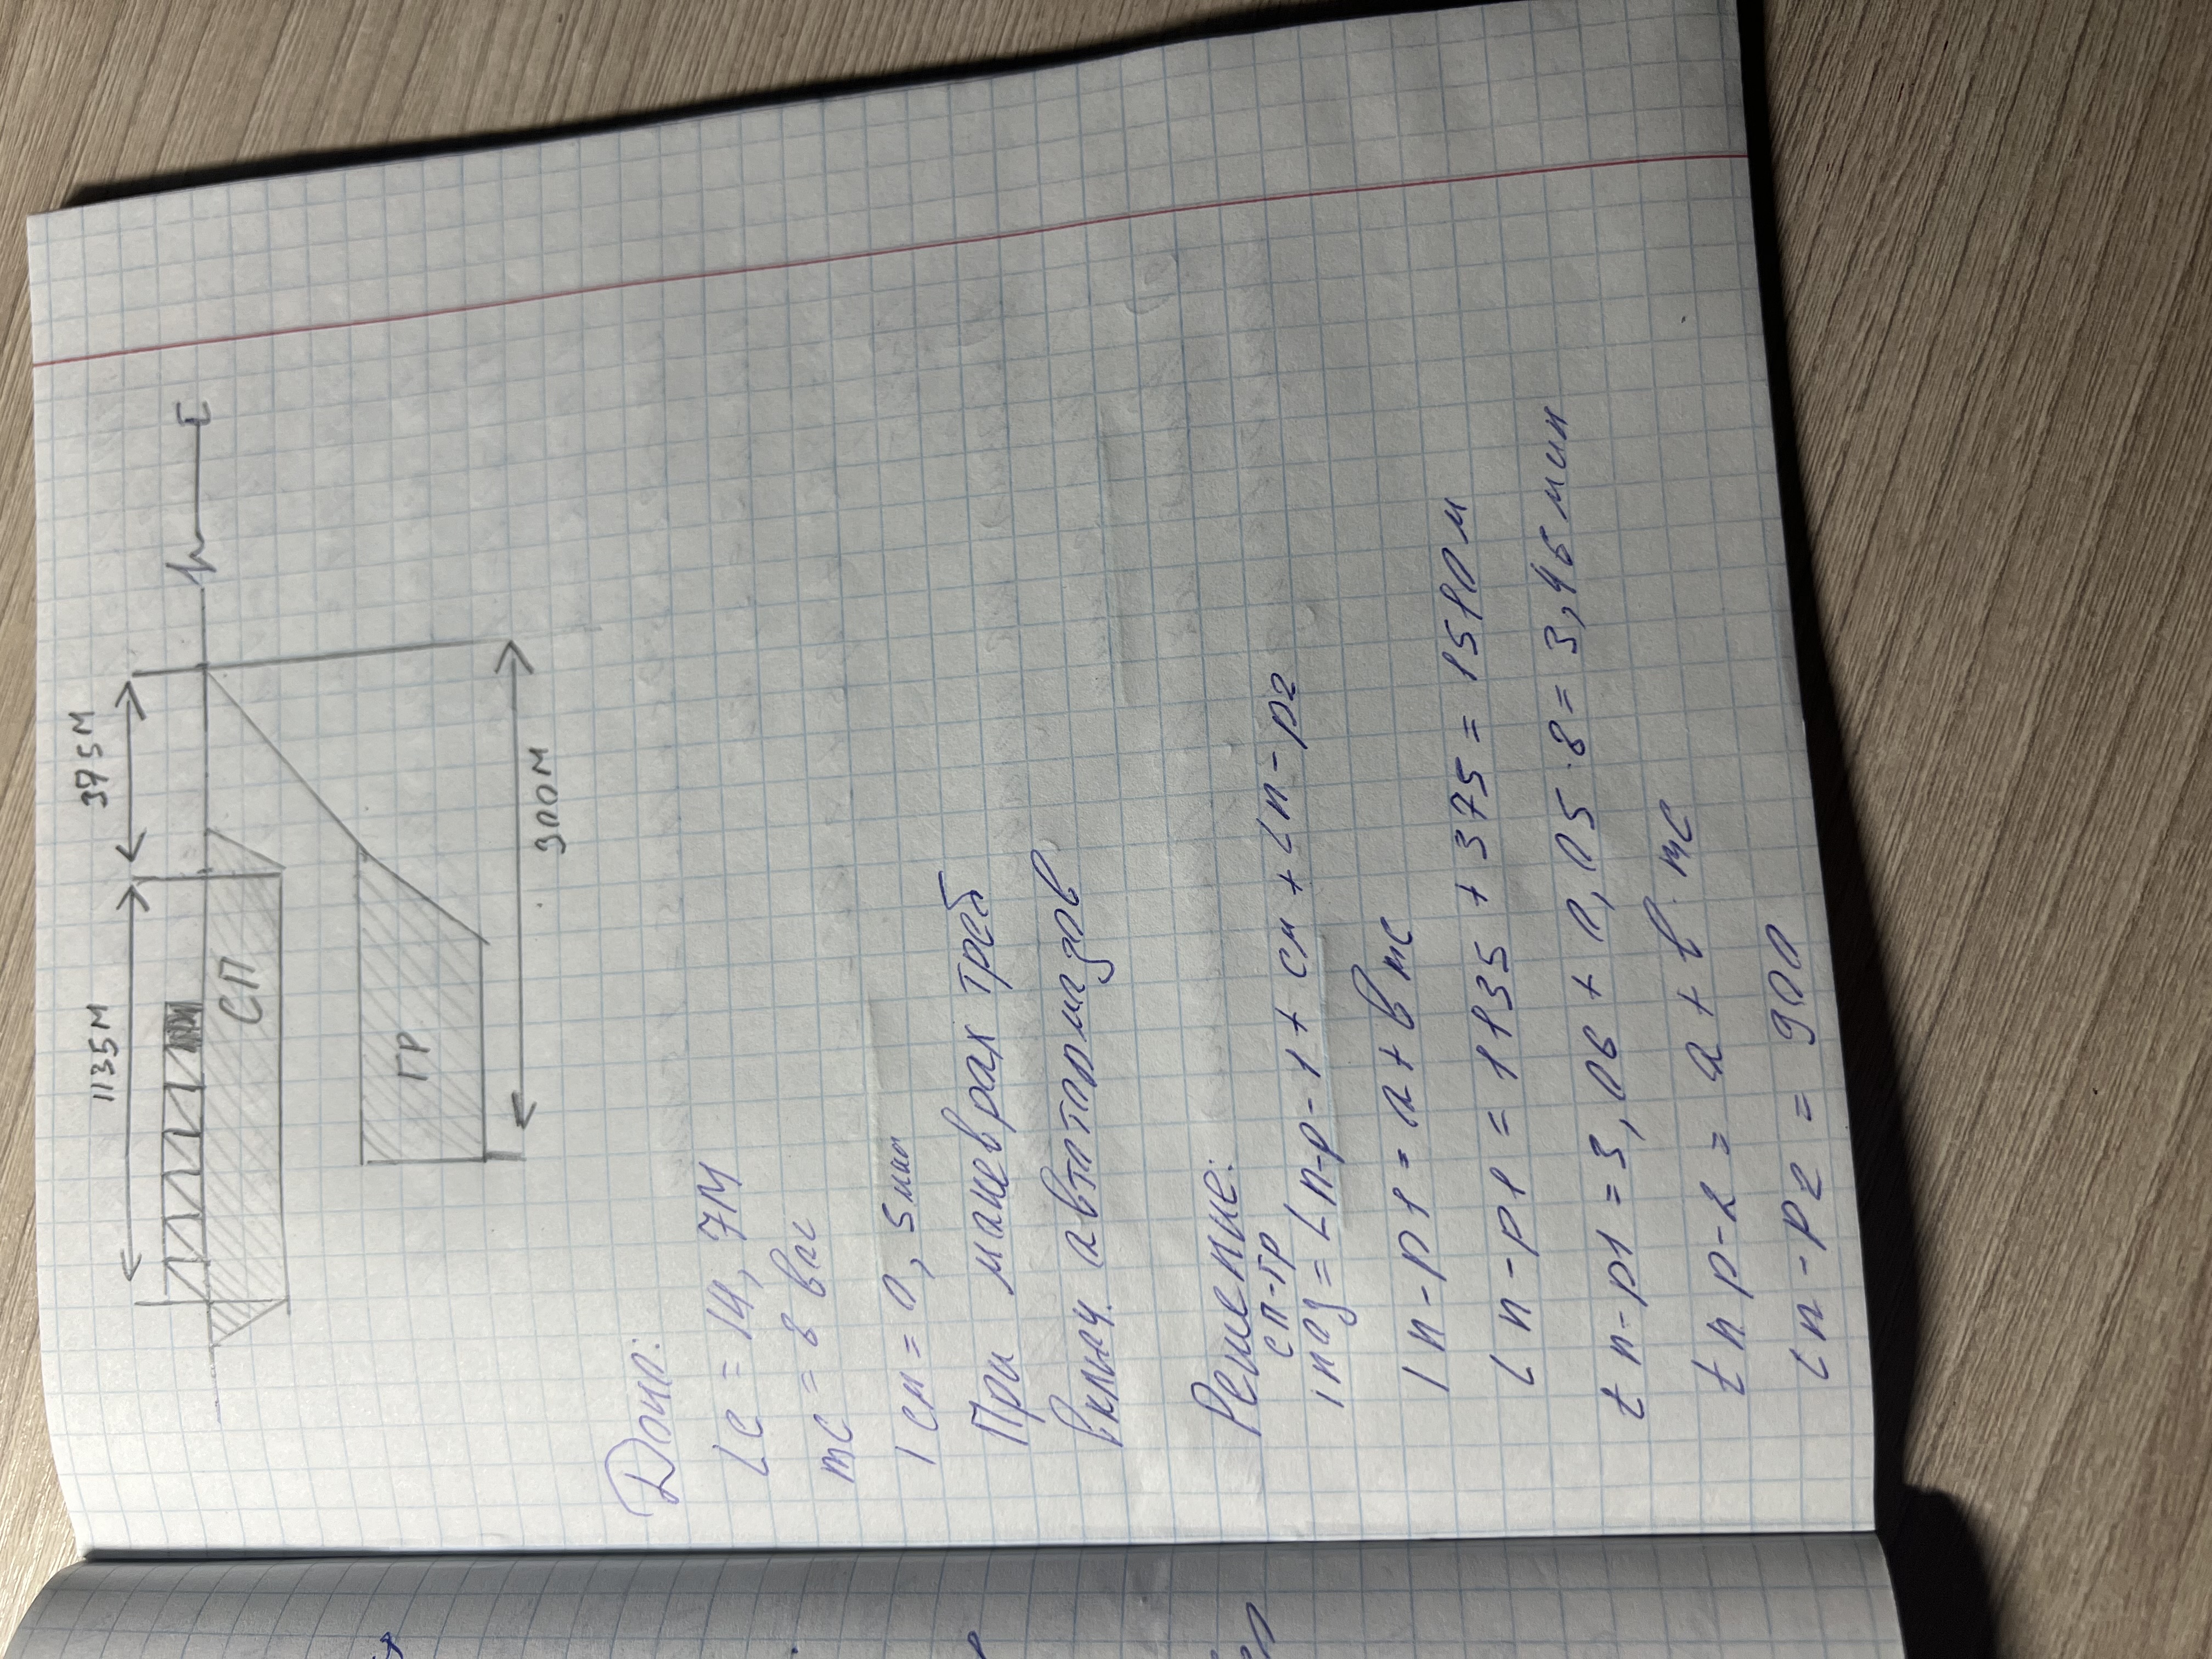 1135м 375м
СП
ГР
900м
Дано:
Lc = 14,7м
mc = 8 ваг
tсм = 0,5мин
При маневрах треб
включ. автотормазов
Решение:
tпод сп-гр = Lп-р-1 + см + Lп-р2
tп-р1 = a + в mc
Lп-р1 = 1135 + 375 = 1510м
tп-р1 = 3,06 + 0,05·8 = 3,46 мин
tп р-2 = a + в mc
Lп-р2 = 900